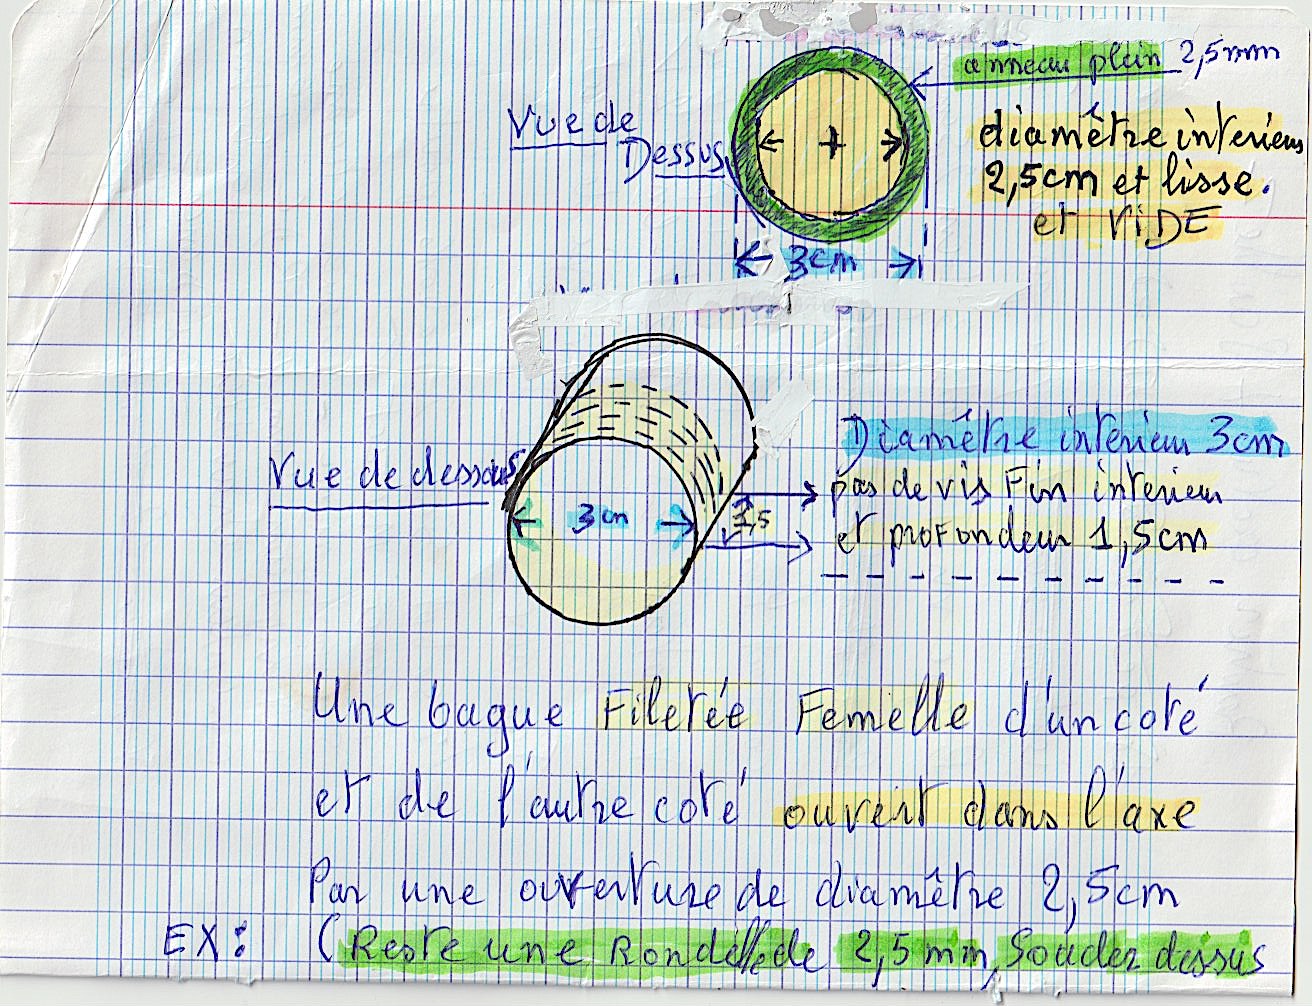 anneau plein 2,5mm
Vue de
Dessus
diamêtre interieur
2,5cm et lisse.
et ViDE
3cm
Diamêtre interieur 3cm
Vue de dessous
pas de vis Fin interieur
3cm
1,5
et profondeur 1,5cm
Une bague Filetée Femelle d'un coté
et de l'autre coté ouvert dans l'axe
Par une ouverture de diamêtre 2,5cm
EX: (Reste une Rondelle de 2,5mm, Souder dessus